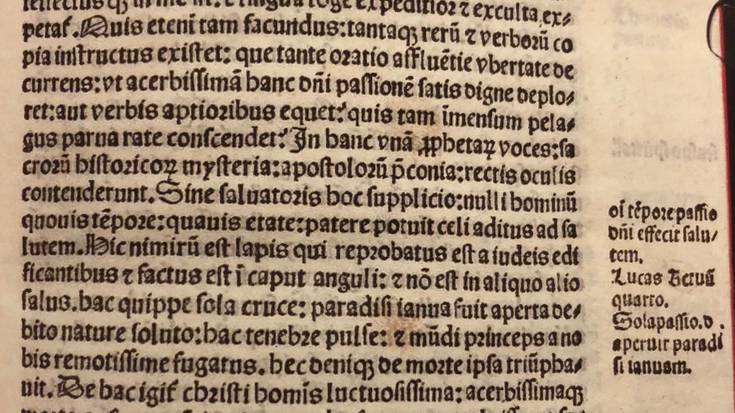 tellectus qȝ in me sit: ⁊ lingua lõge expeditior ⁊ exculta ex⸗
petať. Quis etenĩ tam facundus: tantaqȝ rerũ ⁊ verborũ co
pia instructus existet: que tante oratio affluẽtie vbertate de
currens: vt acerbissimã hanc dñi passionẽ satis digne deplo⸗
ret: aut verbis aptioribus equet: quis tam ĩmensum pela⸗
gus parua rate conscendet: In hanc vnã ꝓphetaꝝ voces: sa
crorũ historicoꝝ mysteria: apostolorũ p̃conia: rectis oculis
contenderunt. Sine saluatoris hoc supplicio: nulli hominũ
quouis tẽpore: quauis etate: patere potuit celi aditus ad sa
lutem. Hic nimirũ est lapis qui reprobatus est a iudeis edi
ficantibus ⁊ factus est ĩ caput anguli: ⁊ nõ est in aliquo alio
salus. hac quippe sola cruce: paradisi ianua fuit aperta de⸗
bito nature soluto: hac tenebre pulse: ⁊ mũdi princeps a no
bis remotissime fugatus. hec deniqȝ de morte ipsa triũpha⸗
uit. De hac igiť christi homĩs luctuosissima: acerbissimaqȝ
oĩ tẽpore passio
dñi effecit salu⸗
tem.
Lucas
quarto.
Sola passio. d.
aperuit paradi
si ianuam.